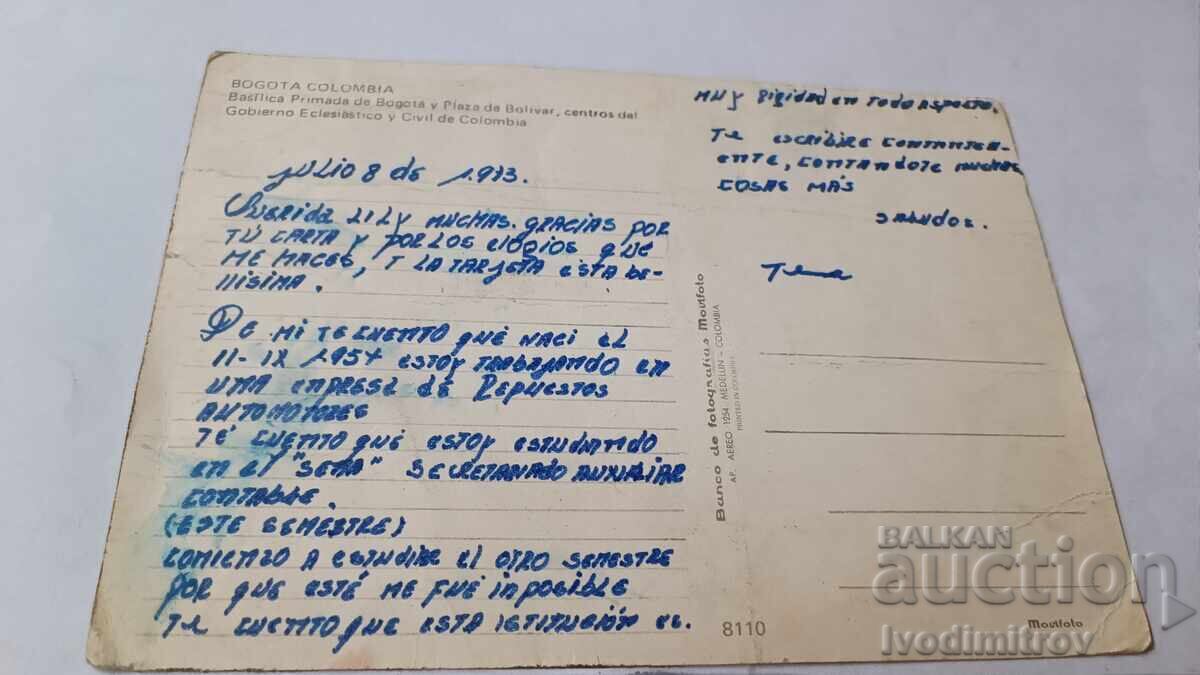 BOGOTA COLOMBIA
Basílica Primada de Bogotá y Plaza de Bolívar, centros del
Gobierno Eclesiástico y Civil de Colombia
JULIO 8 de 1.973.
Querida LILY MUCHAS GRACIAS POR
TÚ CARTA y POR LOS elogios que
ME HACES, T LA TARJETA esta be-
llisima.
De MI TE CUENTO QUE NACI el
11-IX 1957 estoy TRABAJANDO en
UNA empresa de Repuestos
AUTOMOTORES
TÉ CUENTO QUÉ estoy estudiando
en el "SENA" SECRETARIADO AUXILIAR
CONTABLE.
(ESTE SEMESTRE)
COMIENZO A estudiar el otro semestre
POR QUE esté me fué imposible
Te CUENTO que esta istitución es.
MUY rigida en TODO aspecto.
Te escribire contantem-
ente, contandote muchas
COSAS MÁS
SALUDOS.
Banco de fotografías Mostfoto
AP. AEREO 1254 - MEDELLIN - COLOMBIA
PRINTED IN COLOMBIA
8110
Mostfoto
BALKAN
auction
Ivodimitrov